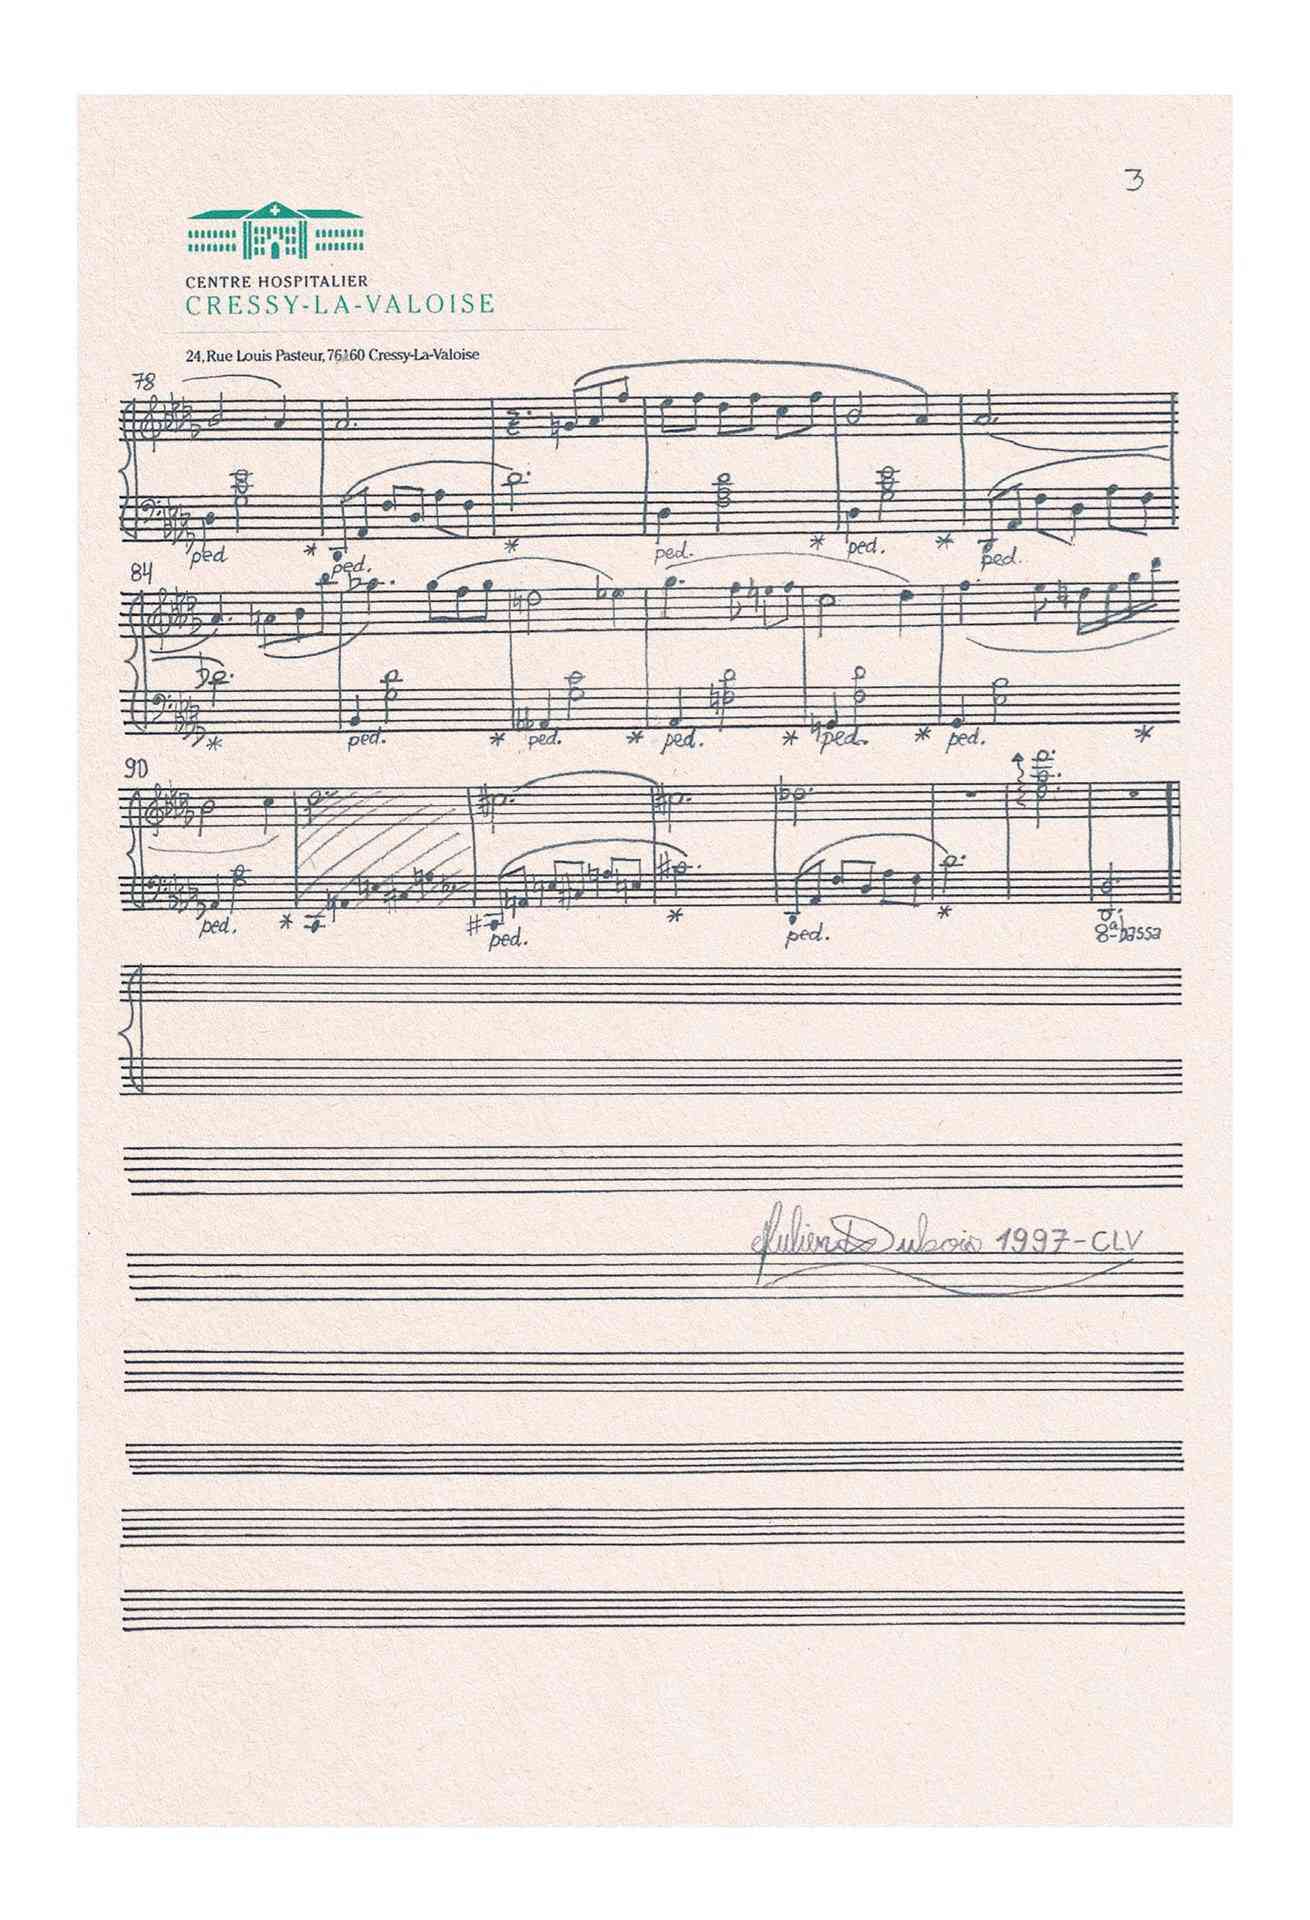 3
CENTRE HOSPITALIER
CRESSY-LA-VALOISE
24, Rue Louis Pasteur, 76160 Cressy-La-Valoise
78
ped * ped. * ped. * ped. * ped.
84
* ped. * ped. * ped. * ped. * ped. *
90
ped. * ped. * ped. * 8ª bassa
Julien Dubois 1997-CLV